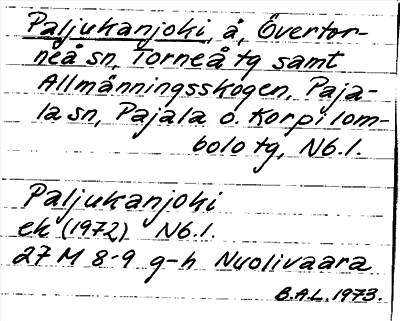 Paljukanjoki, å, Övertor-
neå sn, Torneå tg samt
Allmänningsskogen, Paja-
la sn, Pajala o. Korpilom-
bolo tg, Nb.l.
Paljukanjoki
ek (1972) Nb.l.
27 M 8-9 g-h Nuolivaara
B.A.L. 1973.